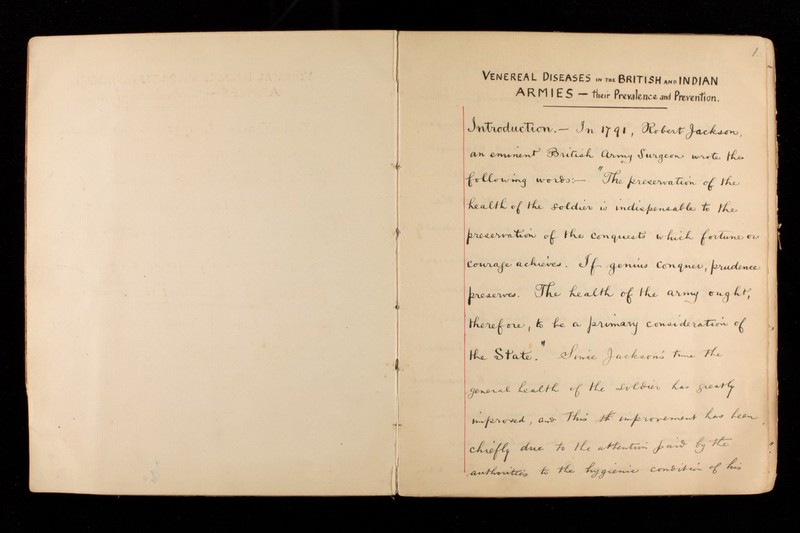 1.
VENEREAL DISEASES IN THE BRITISH AND INDIAN
ARMIES — their Prevalence and Prevention.
Introduction. — In 1791, Robert Jackson,
an eminent British Army Surgeon wrote the
following words:— "The preservation of the
health of the soldier is indispensable to the
preservation of the conquests which fortune or
courage achieves. If genius conquer, prudence
preserves. The health of the army ought,
therefore, to be a primary consideration of
the State." Since Jackson's time the
general health of the soldier has greatly
improved, and this improvement has been
chiefly due to the attention paid by the
authorities to the hygienic condition of his